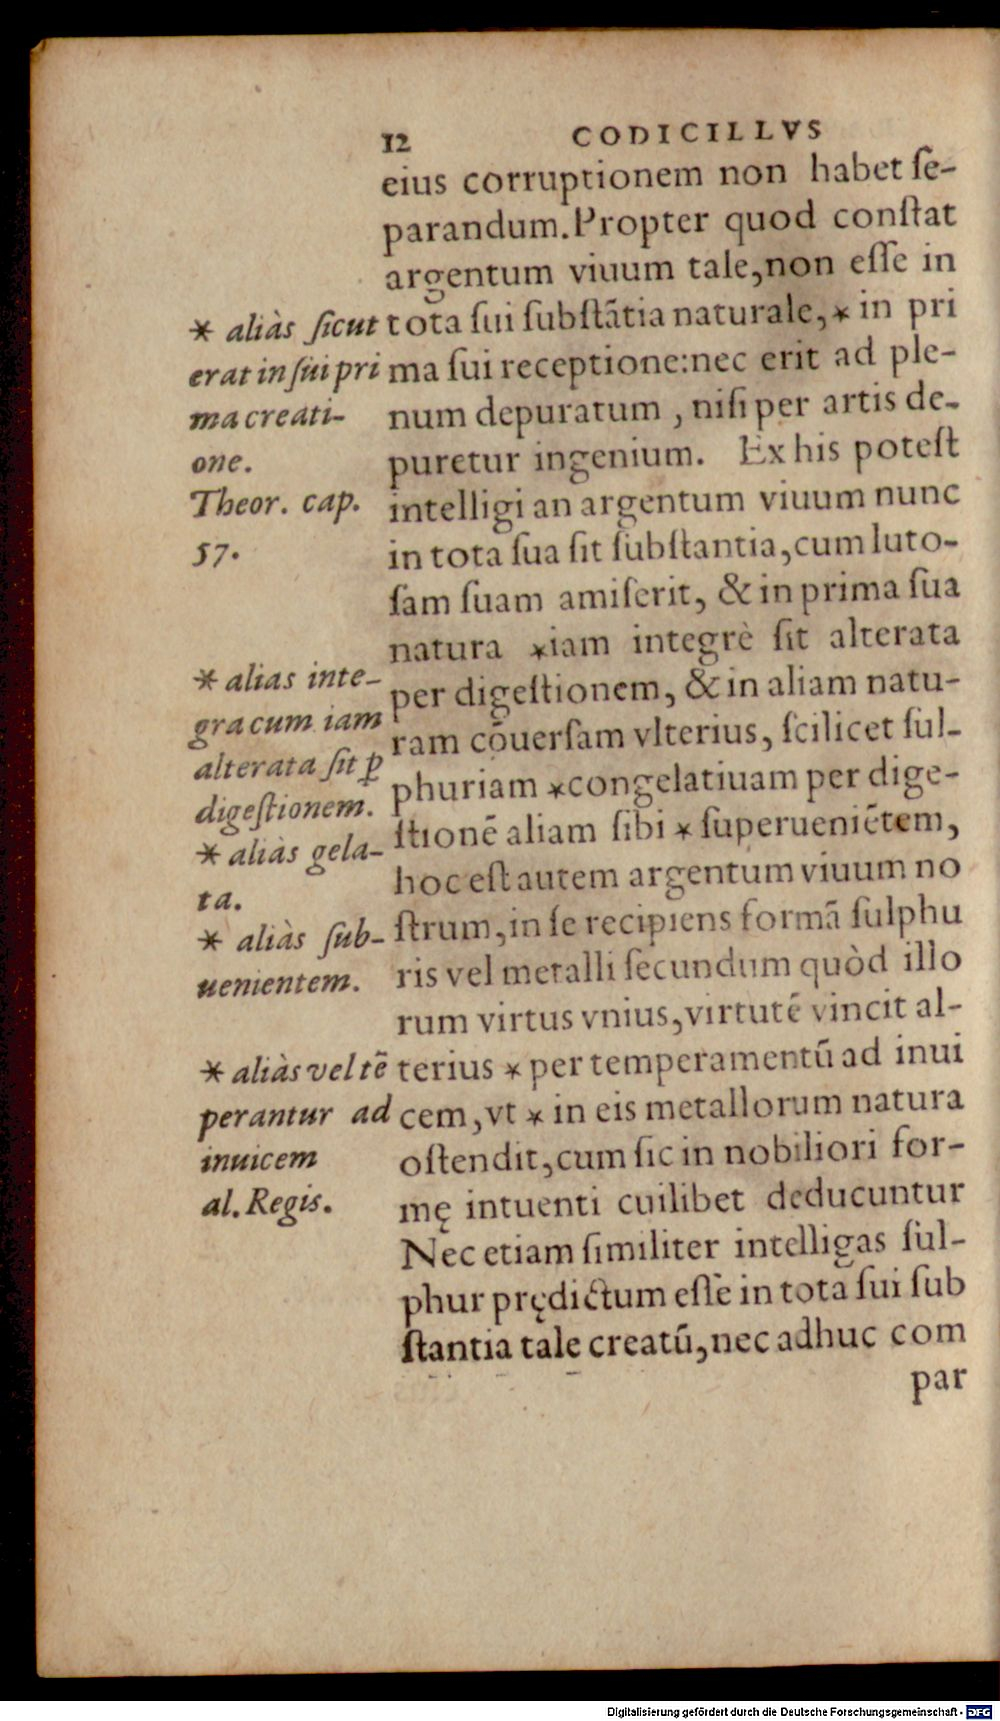 12 CODICILLVS
eius corruptionem non habet ſe-
parandum. Propter quod conſtat
argentum viuum tale, non eſſe in
tota ſui ſubſtãtia naturale, * in pri
ma ſui receptione: nec erit ad ple-
num depuratum, niſi per artis de-
puretur ingenium. Ex his poteſt
intelligi an argentum viuum nunc
in tota ſua ſit ſubſtantia, cum luto-
ſam ſuam amiſerit, & in prima ſua
natura *iam integrè ſit alterata
per digeſtionem, & in aliam natu-
ram cõuerſam vlterius, ſcilicet ſul-
phuriam *congelatiuam per dige-
ſtionẽ aliam ſibi * ſuperueniẽtem,
hoc eſt autem argentum viuum no
ſtrum, in ſe recipiens formã ſulphu
ris vel metalli ſecundum quòd illo
rum virtus vnius, virtutẽ vincit al-
terius * per temperamentũ ad inui
cem, vt * in eis metallorum natura
oſtendit, cum ſic in nobiliori for-
mę intuenti cuilibet deducuntur
Nec etiam ſimiliter intelligas ſul-
phur prędictum eſſe in tota ſui ſub
ſtantia tale creatũ, nec adhuc com
par
* aliàs ſicut
erat in ſui pri
ma creati-
one.
Theor. cap.
57.
* alias inte-
gra cum iam
alterata ſit ꝑ
digeſtionem.
* aliàs gela-
ta.
* aliàs ſub-
uenientem.
* aliàs vel tẽ
perantur ad
inuicem
al. Regis.
Digitalisierung gefördert durch die Deutsche Forschungsgemeinschaft - DFG